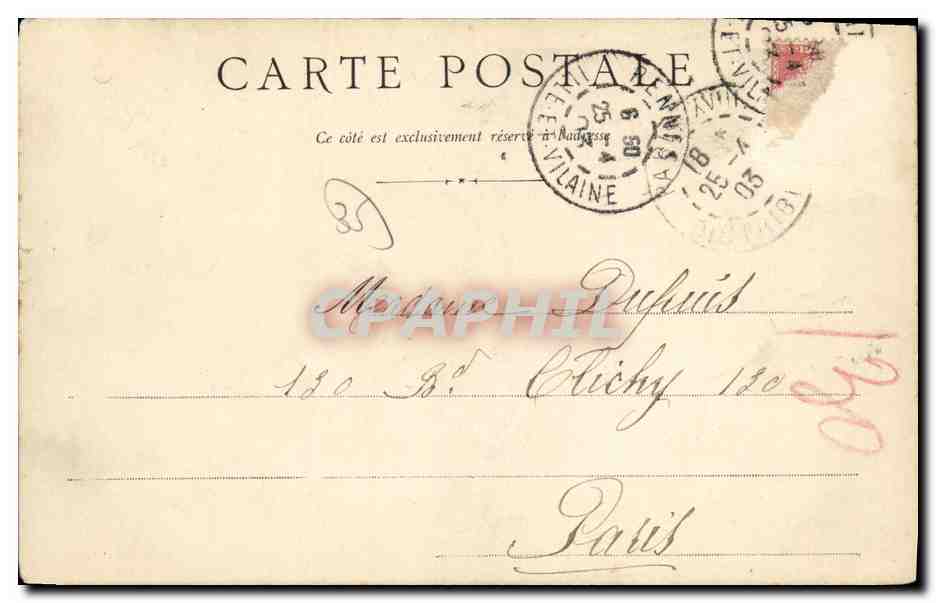 CARTE POSTALE
Ce côté est exclusivement réservé à l'adresse
ILLE-ET-VILAINE
6 50
25 -4
03
PARIS
18
25 -4
03
DISTRIB
ET-VILA
35
Madame Dupuis
130 Bd Clichy 130
Paris
130
CPAPHIL